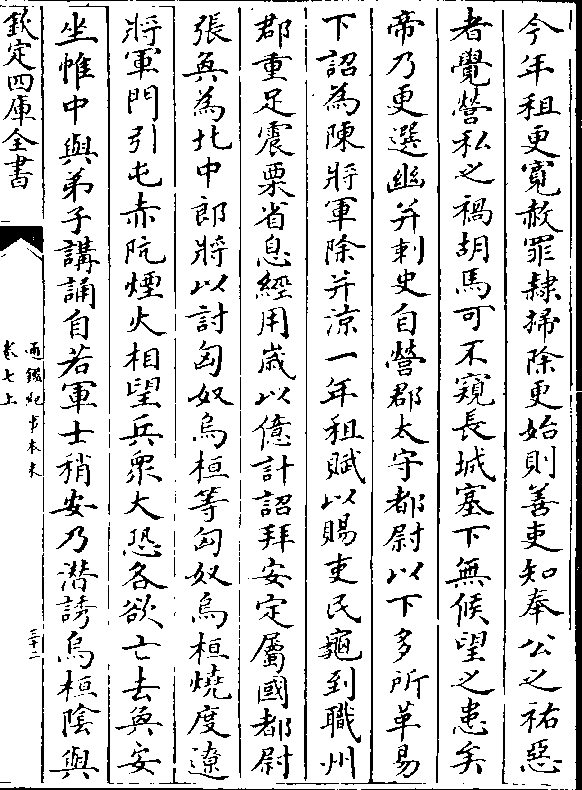 今年租更寛赦罪隷掃除更始則善吏知奉公之祐惡
者覺營私之禍胡馬可不窺長城塞下無候望之患矣
帝乃更選幽并刺史自營郡太守都尉以下多所革易
下詔為陳將軍除并涼一年租賦以賜吏民龜到職州
郡重足震栗省息經用嵗以億計詔拜安定屬國都尉
張奐為北中郎將以討匈奴烏桓等匈奴烏桓燒度遼
將軍門引屯赤阬煙火相望兵衆大恐各欲亡去奐安
坐帷中與弟子講誦自若軍士稍安乃潛誘烏桓陰與
欽定四庫全書
通鑑紀事本末
卷七上
三十二